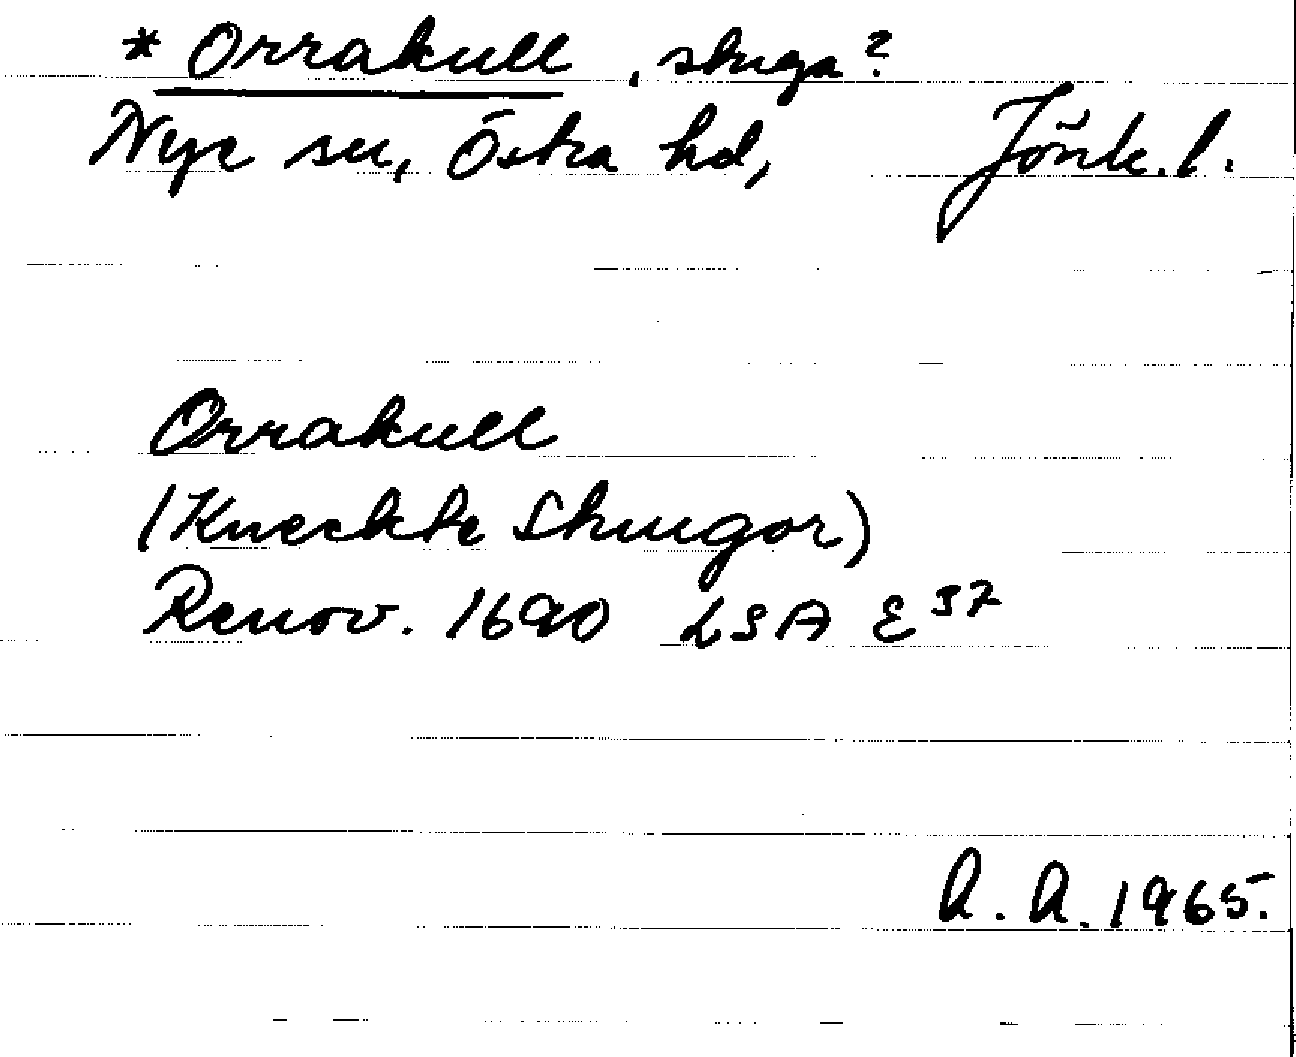 * Orrakull, stuga?
Nye sn, Östra hd, Jönk.l.
Orrakull
(Kneckte Stugor)
Renov. 1690 LSA E 37
A. A. 1965.